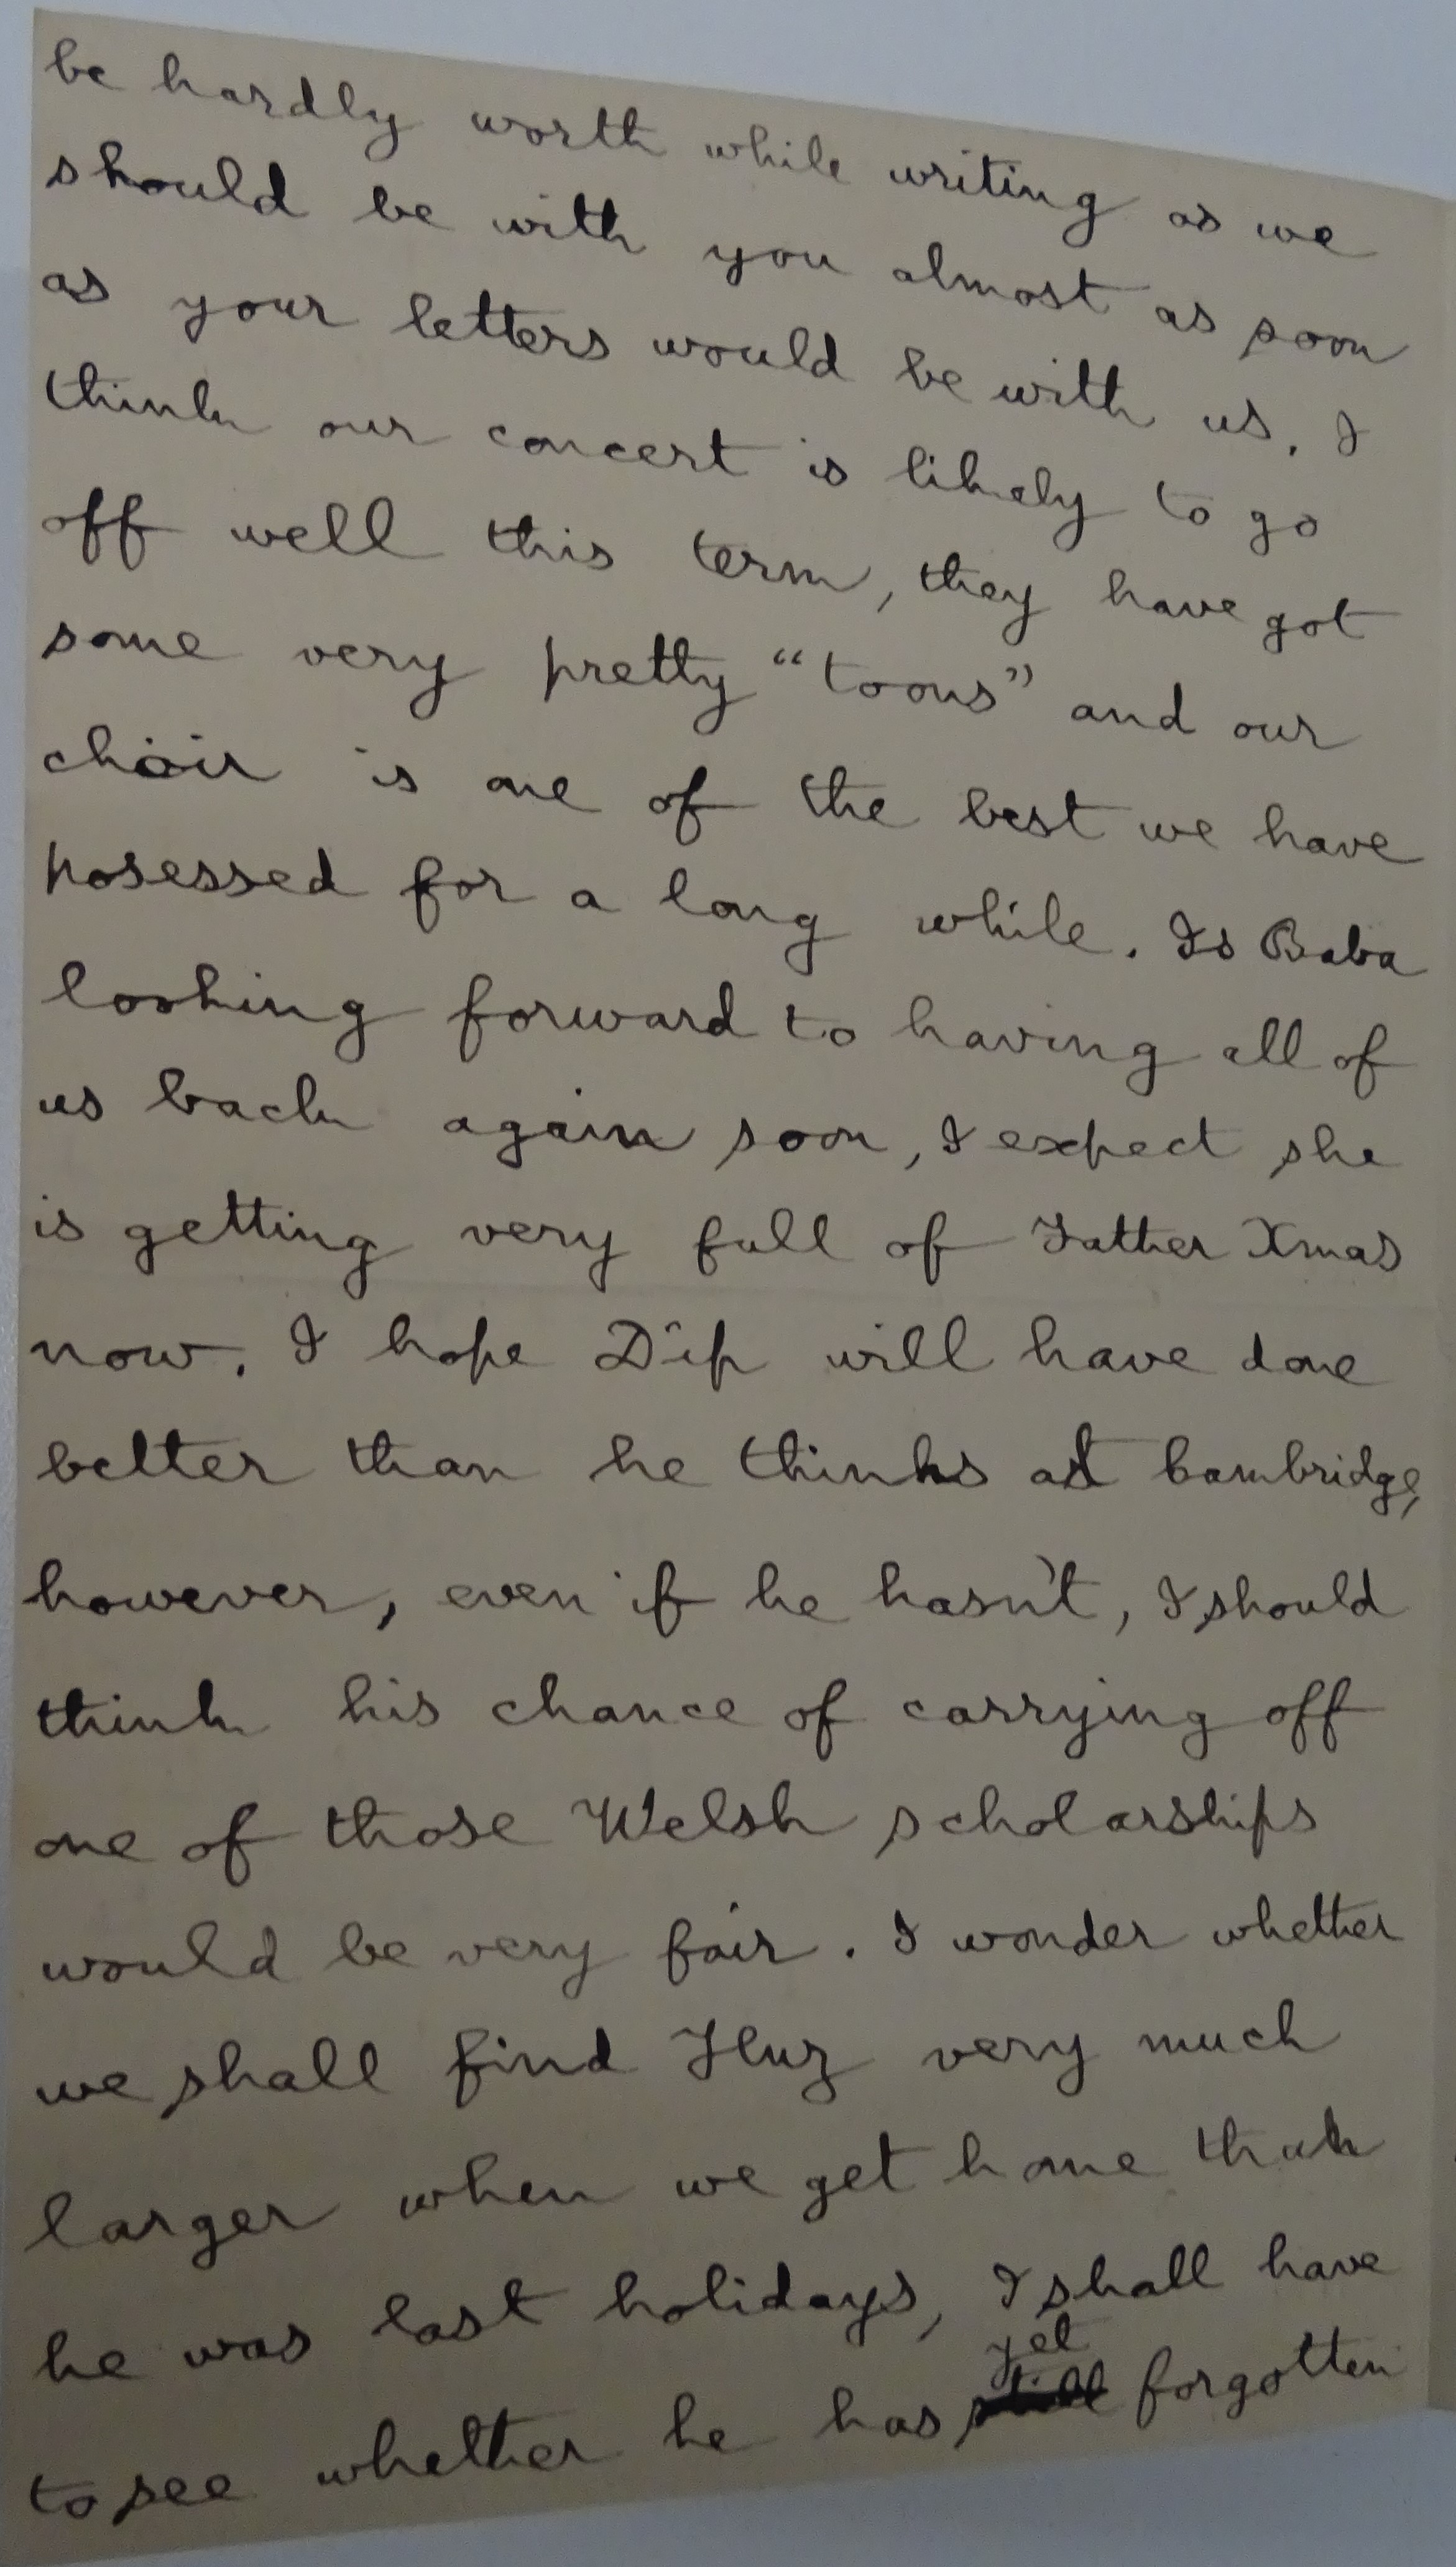 be hardly worth while writing as we
should be with you almost as soon
as your letters would be with us. I
think our concert is likely to go
off well this term, they have got
some very pretty "toons" and our
choir is one of the best we have
posessed for a long while. Is Baba
looking forward to having all of
us back again soon, I expect she
is getting very full of Father Xmas
now. I hope Dip will have done
better than he thinks at Cambridge,
however, even if he hasn't, I should
think his chance of carrying off
one of those Welsh scholarships
would be very fair. I wonder whether
we shall find Fluz very much
larger when we get home than
he was last holidays, I shall have
yet
to see whether he has still forgotten